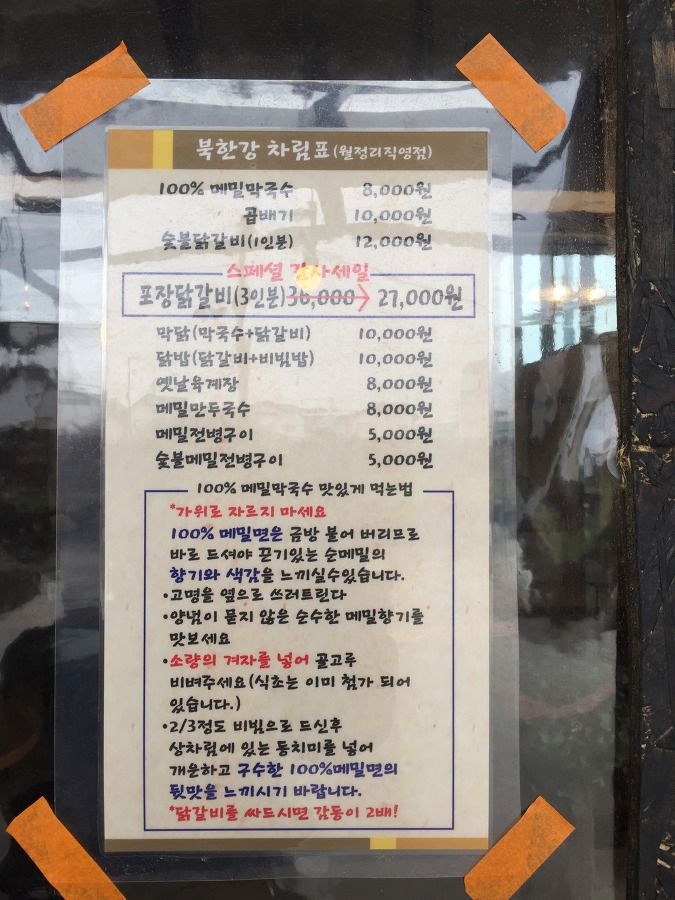 북한강 차림표(월정리직영점)
100% 메밀막국수 8,000원
곱배기 10,000원
숯불닭갈비(1인분) 12,000원
스페셜 감사세일
포장닭갈비(3인분) 36,000→ 27,000원
막닭(막국수+닭갈비) 10,000원
닭밥(닭갈비+비빔밥) 10,000원
옛날육계장 8,000원
메밀만두국수 8,000원
메밀전병구이 5,000원
숯불메밀전병구이 5,000원
100% 메밀막국수 맛있게 먹는법
*가위로 자르지 마세요
100% 메밀면은 금방 불어 버리므로
바로 드셔야 끈기있는 순메밀의
향기와 색감을 느끼실수있습니다.
·고명을 옆으로 쓰러트린다
·양념이 묻지 않은 순수한 메밀향기를
맛보세요
·소량의 겨자를 넣어 골고루
비벼주세요(식초는 이미 첨가 되어
있습니다.)
·2/3정도 비빔으로 드신후
상차림에 있는 동치미를 넣어
개운하고 구수한 100%메밀면의
뒷맛을 느끼시기 바랍니다.
*닭갈비를 싸드시면 감동이 2배!